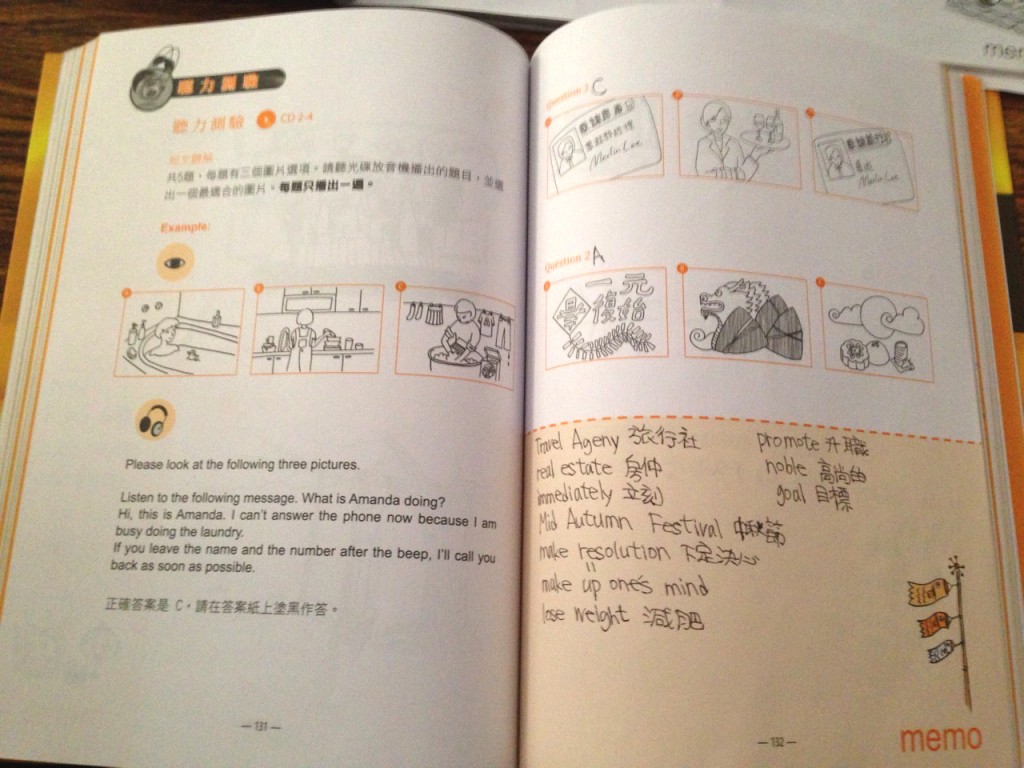 聽力測驗
聽力測驗 CD 2-4
共5題，每題有三個圖片選項。請聽光碟放音機播出的題目，並選
出一個最適合的圖片。每題只播出一遍。
Example:
A
B
C
Please look at the following three pictures.
Listen to the following message. What is Amanda doing?
Hi, this is Amanda. I can't answer the phone now because I am
busy doing the laundry.
If you leave the name and the number after the beep, I'll call you
back as soon as possible.
正確答案是 C，請在答案紙上塗黑作答。
— 131 —
Question 1 C
Merlin Lee
Merlin Lee
Question 2 A
一元
復始
Travel Ageny 旅行社
promote 升職
real estate 房仲
noble 高尚的
immediately 立刻
goal 目標
Mid Autumn Festival 中秋節
make resolution 下定決心
make up one's mind
lose weight 減肥
— 132 —
memo